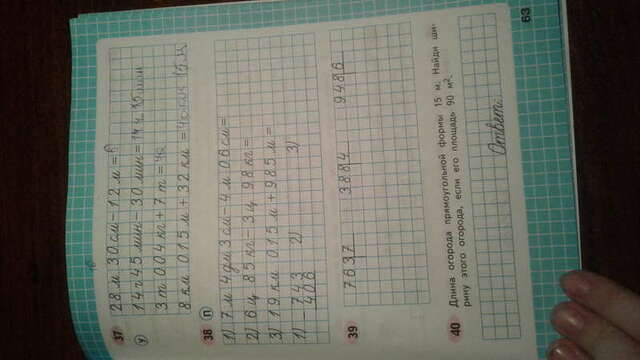 37
28 м 30 см – 12 м =
14 ч 45 мин – 30 мин = 14 ч 15 мин
3 т 004 кг + 7 т =
8 км 015 м + 32 км =
38 П
1) 7 м 4 дм 3 см – 4 м 06 см =
2) 6 ц 85 кг – 3 ц 98 кг =
3) 19 км 015 м + 985 м =
1) – 743 2) 3)
406
39
7637 3884 9486
40 Длина огорода прямоугольной формы 15 м. Найди ши-
рину этого огорода, если его площадь 90 м².
Ответ:
63